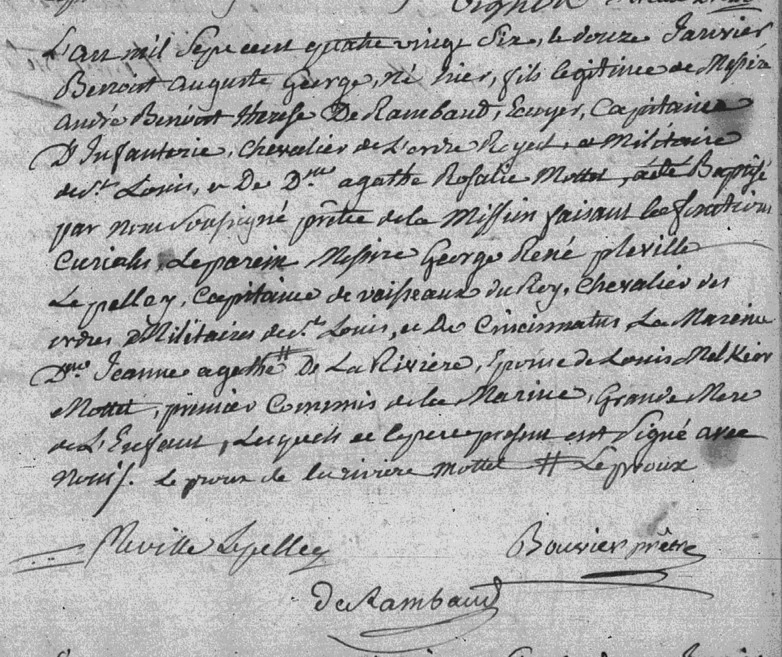 L'an mil Sept cent quatre vingt Six, le douze Janvier
Benoit auguste George, né hier, fils legitime de Messire
andré Benoit Therese De Rambaud, Ecuyer, Capitaine
D'Infanterie, Chevalier de L'ordre Royal, et Militaire
de St. Louis, et De Dme agathe Rosalie Mottet, a été Baptisé
par nous Soussigné prêtre de la Mission faisant les fonctions
Curiales, Le parein Messire George René pleville
Le pelley, Capitaine de vaisseaux du Roy, Chevalier des
ordres Militaires de St. Louis, et De Cincinnatus, La Mareine
Dme Jeanne agathe # De La Riviere, Epouse de Louis Melkior
Mottet, premier Commis de la Marine, Grande Mere
de L'Enfant, Lesquels et le pere present ont Signé avec
Nous
Le proux de la riviere mottet # Le proux
Pleville Lepelley
Bouvier prêtre
De Rambaud